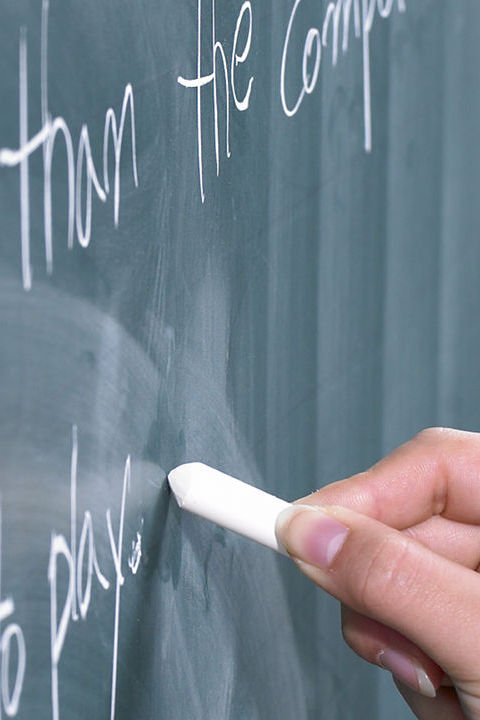 than the compu
to play.